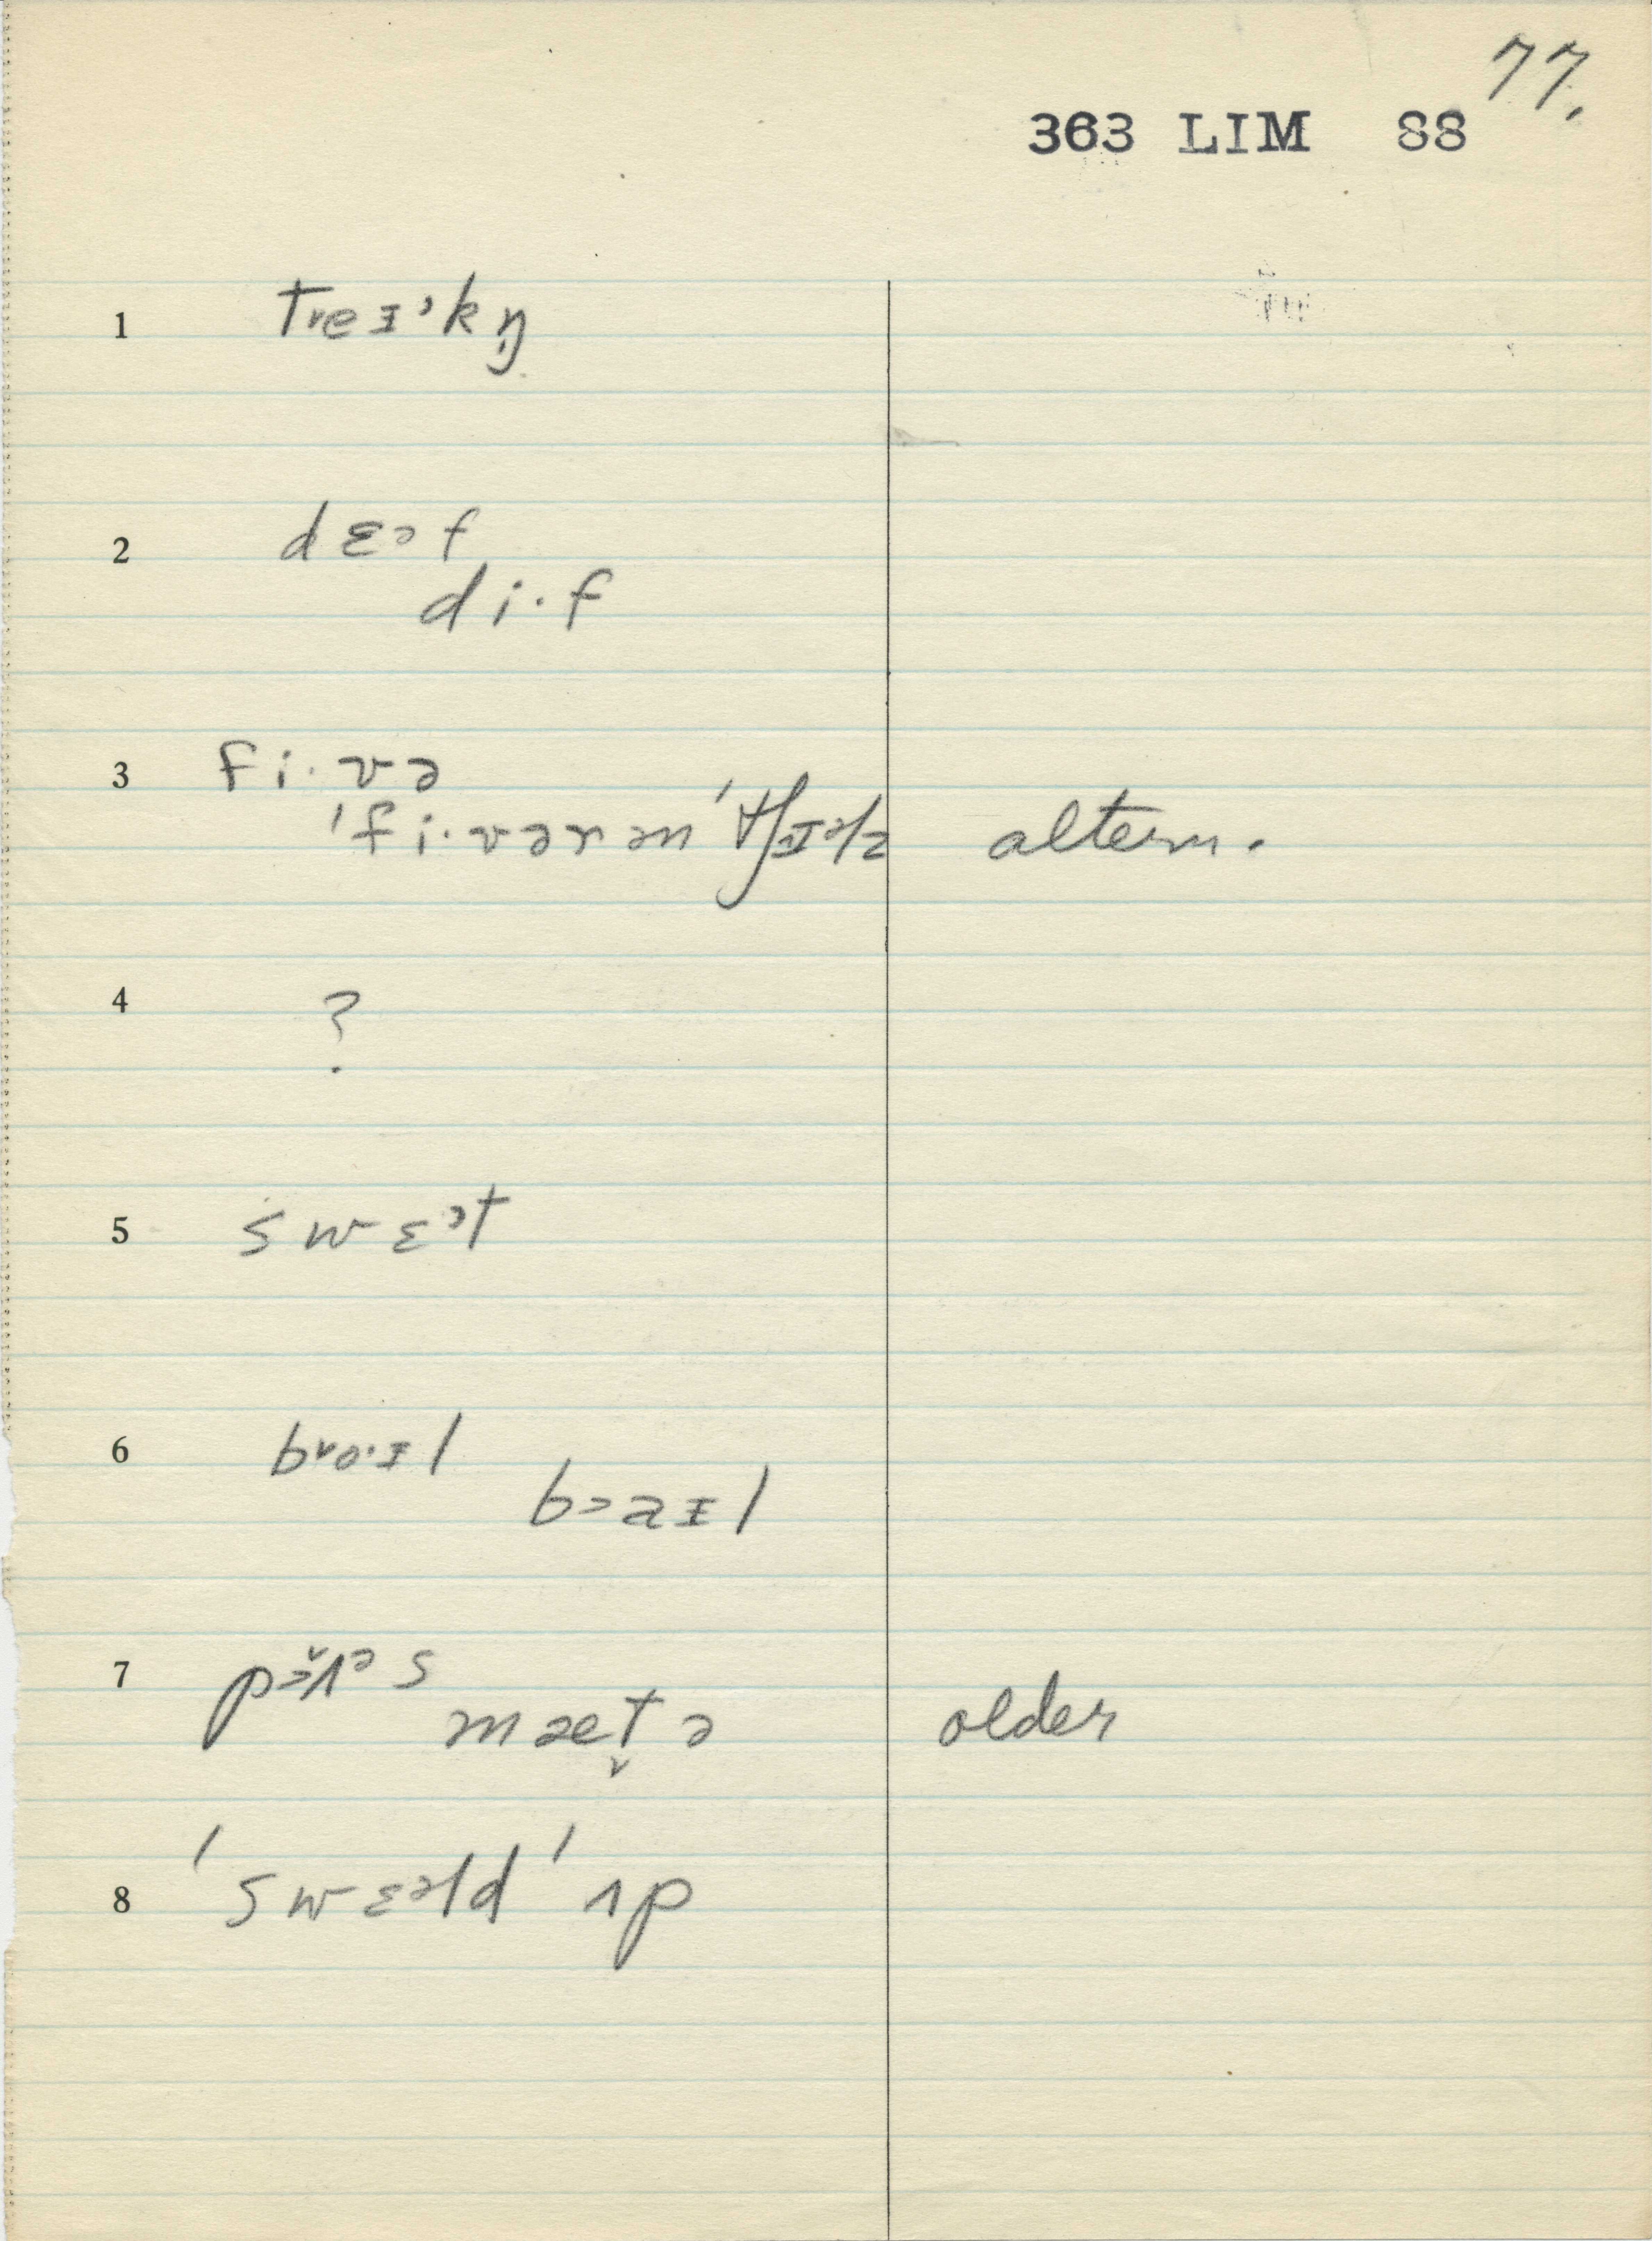 77.
363 LIM 88
1 treɪᵊkŋ̩
2 dɛᵊf
di·f
3 fi·və
ˈfi·vərənˈtʃɪəlz altern.
4 ?
5 swɛᵊt
6 bᵛo·ɪl
bɔaɪl
7
mæt̬ə older
8 ˈswɛəldˈʌp